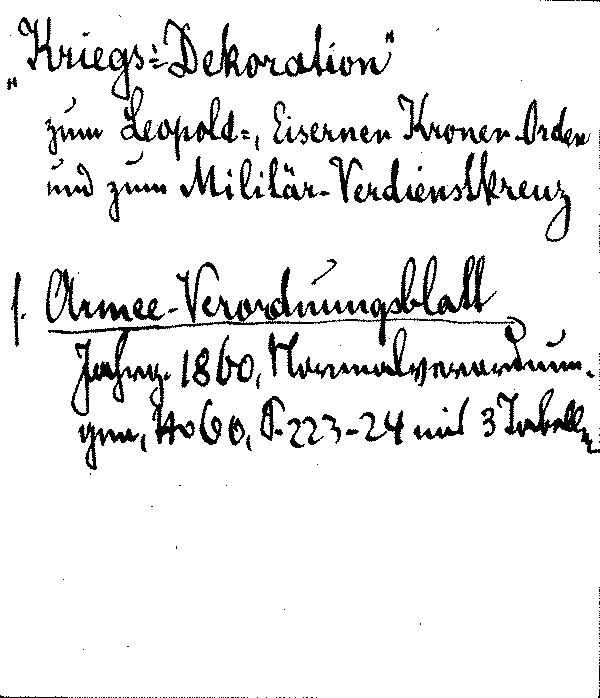 „Kriegs=Dekoration“
zum Leopold=, Eisernen Kronen-Orden
und zum Militär-Verdienstkreuz
s. Armee-Verordnungsblatt
Jahrg. 1860, Normalverordnun-
gen, No 60, S. 223-24 mit 3 Tabellen